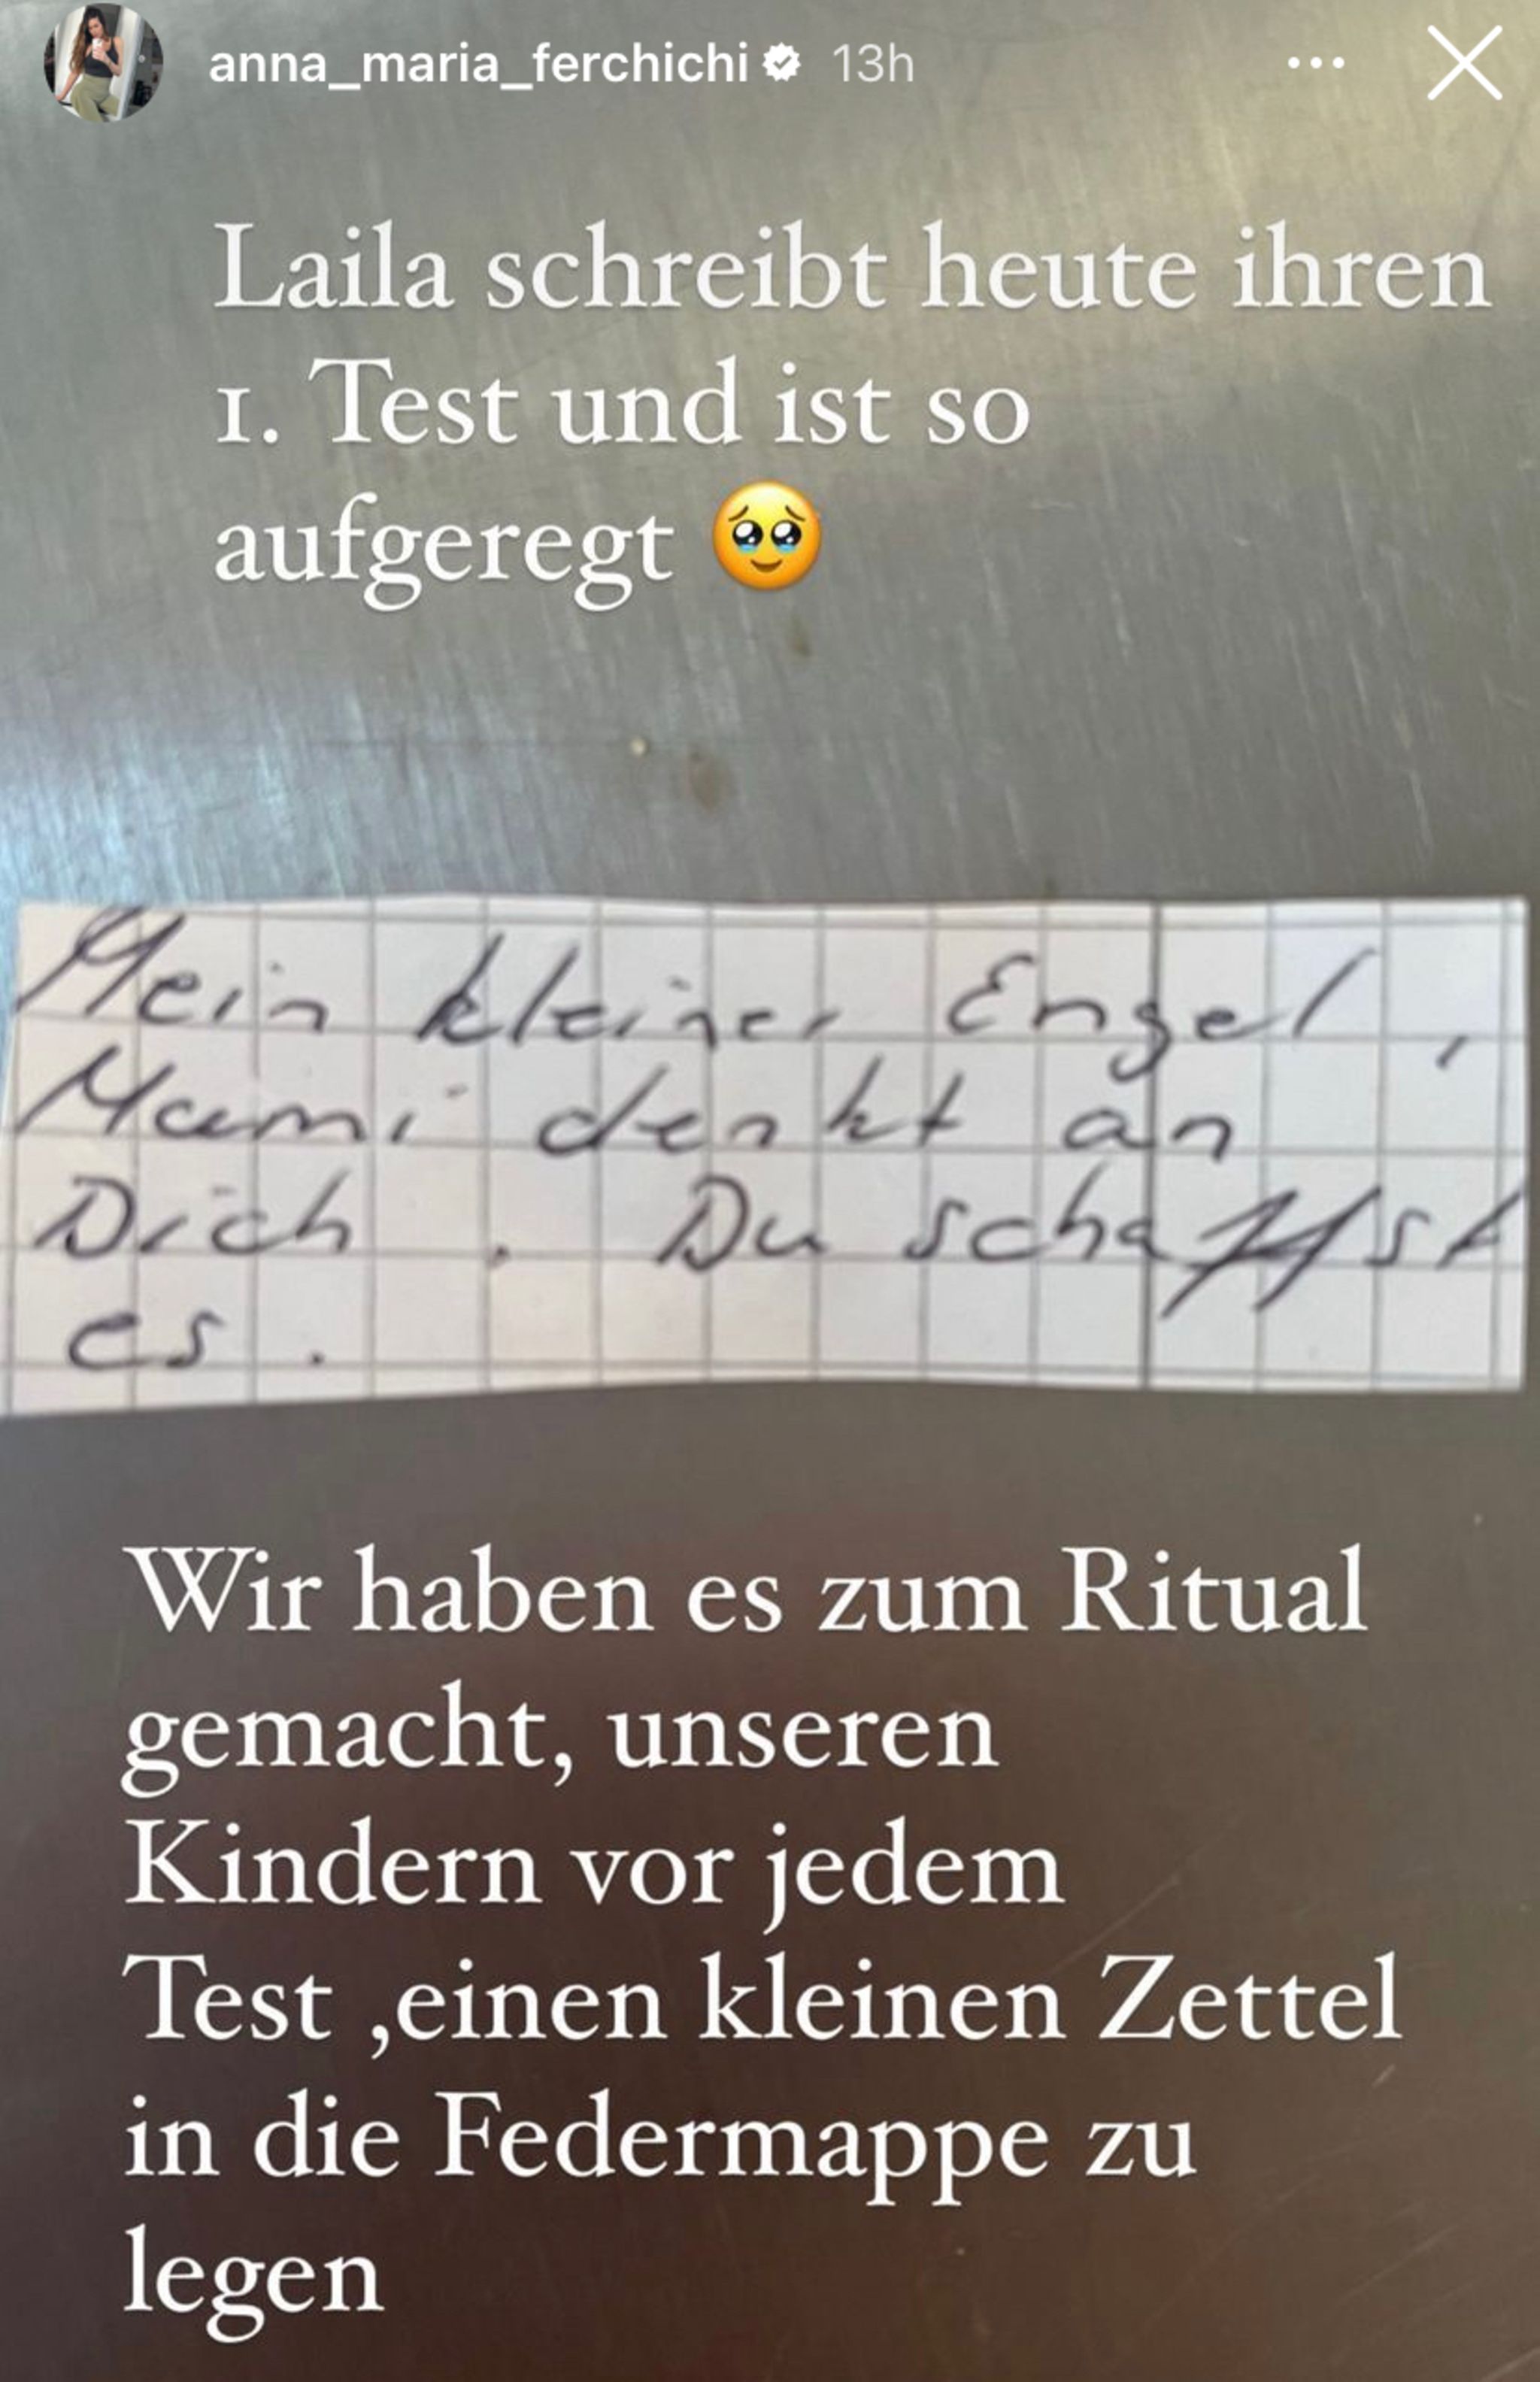 anna_maria_ferchichi 13h
Laila schreibt heute ihren
1. Test und ist so
aufgeregt 🥹
Mein kleiner Engel,
Mami denkt an
Dich. Du schaffst
es.
Wir haben es zum Ritual
gemacht, unseren
Kindern vor jedem
Test ,einen kleinen Zettel
in die Federmappe zu
legen